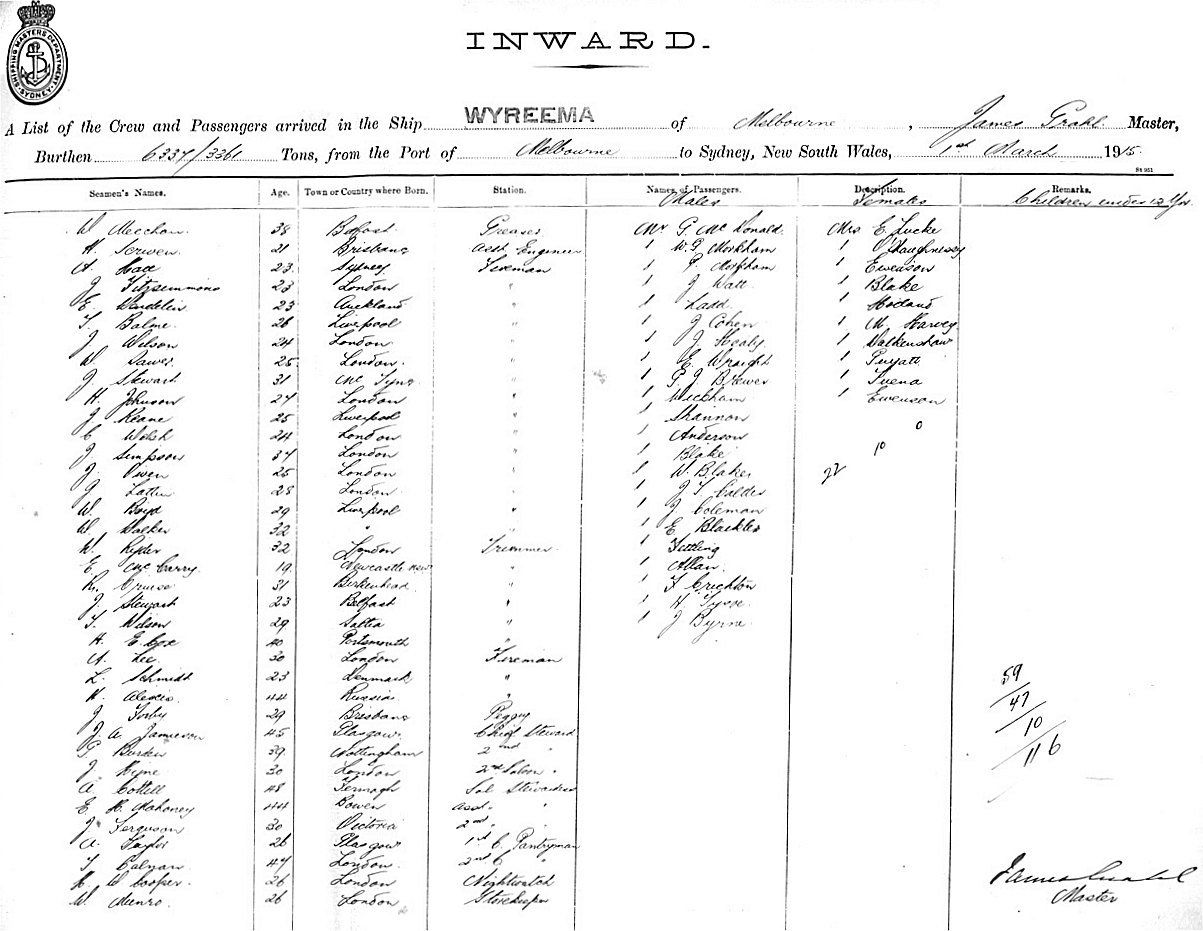 SHIPPING MASTERS DEPARTMENT SYDNEY
INWARD.
A List of the Crew and Passengers arrived in the Ship WYREEMA of Melbourne, James Master,
Burthen 6337/3361 Tons, from the Port of Melbourne to Sydney, New South Wales, 1st March 1915.
St 951
Seamen's Names. Age. Town or Country where Born. Station. Names of Passengers. Description. Remarks.
Males Females Children under 12 Yrs
W Meechan 38 Belfast Greaser Mr G Mc Donald Mrs E. Lucke
H. 21 Brisbane Asst Engineer " W. G. Markham " OShaughnessy
A 23 Sydney Fireman " " Evenson
J Fitzsimmons 23 London " " J Watt " Blake
E 23 Auckland " " Ladd "
T. Balme 26 Liverpool " " J Cohen " M. Harvey
J Wilson 24 London " " J Healy " Walkenshaw
W 25 London " " E Wraight "
J Stewart 31 " " J Brewer "
H. Johnson 27 London " " Wickham " Evenson
J Keane 25 Liverpool " " Shannon 0
C Welsh 24 London " " Anderson
J Simpson 37 London " " Blake 10
J. Owen 25 London " " W. Blake 22
J 28 London " " J T Calder
W. Boyd 29 Liverpool " " J Coleman
W Walker 32 " " " E
W. Ryder 32 London Trimmer "
E McCarry 19 Newcastle NSW " " Allan
R. Cruise 31 Birkenhead " " F Crichton
J. Stewart 23 Belfast " " H
T. Wilson 29 " " J Byrne
H. E Cox 40 Portsmouth "
A. Lee 30 London Fireman
L. Schmidt 23 Denmark " 59
H. Alexis 44 Russia " 47
J 29 Brisbane Peggy 10
J. A. Jamieson 45 Glasgow Chief Steward
39 Nottingham 2nd " 116
J 30 London 2nd Saloon "
A 48 Sal Stewardess
E H. Mahoney 44 Bowen Asst. "
J Ferguson 30 Victoria 2nd "
A Taylor 26 Glasgow 1st C. Pantryman
T Calnan 47 London 2nd C "
H W Cooper 26 London Nightwatch
W. Munro 26 London Storekeeper
James
Master